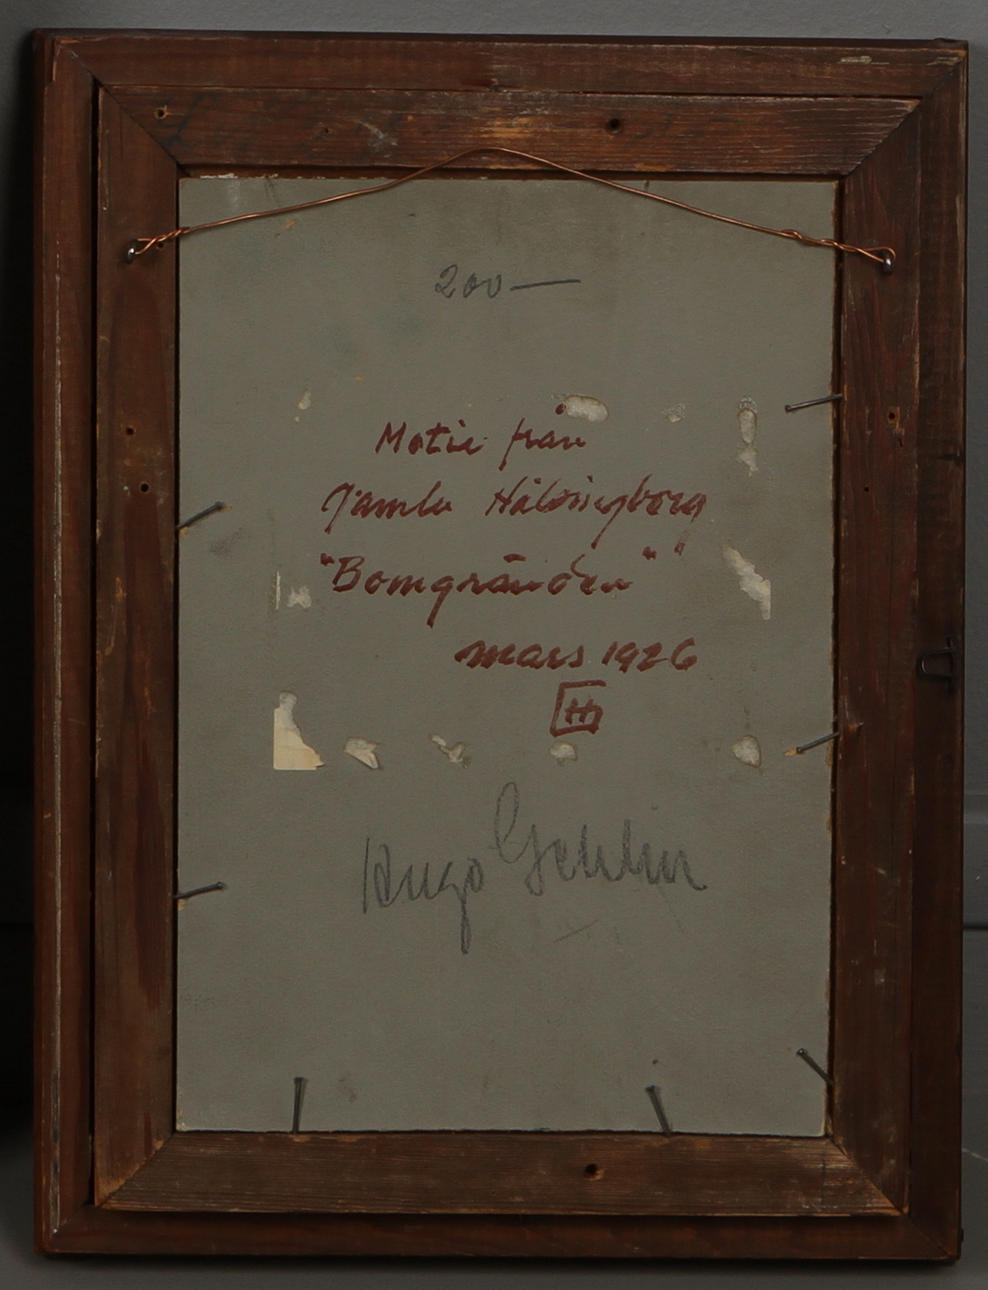 200—
Motiv från
Gamla Hälsingborg
"Bomgränden"
mars 1926
Hugo Gehlin